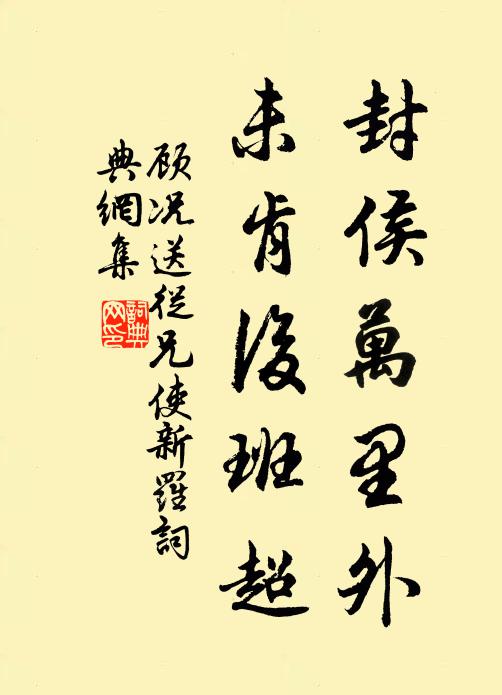 封侯萬里外
未肯後班超
顾况送從兄使新羅詞
典網集
詞典
网印